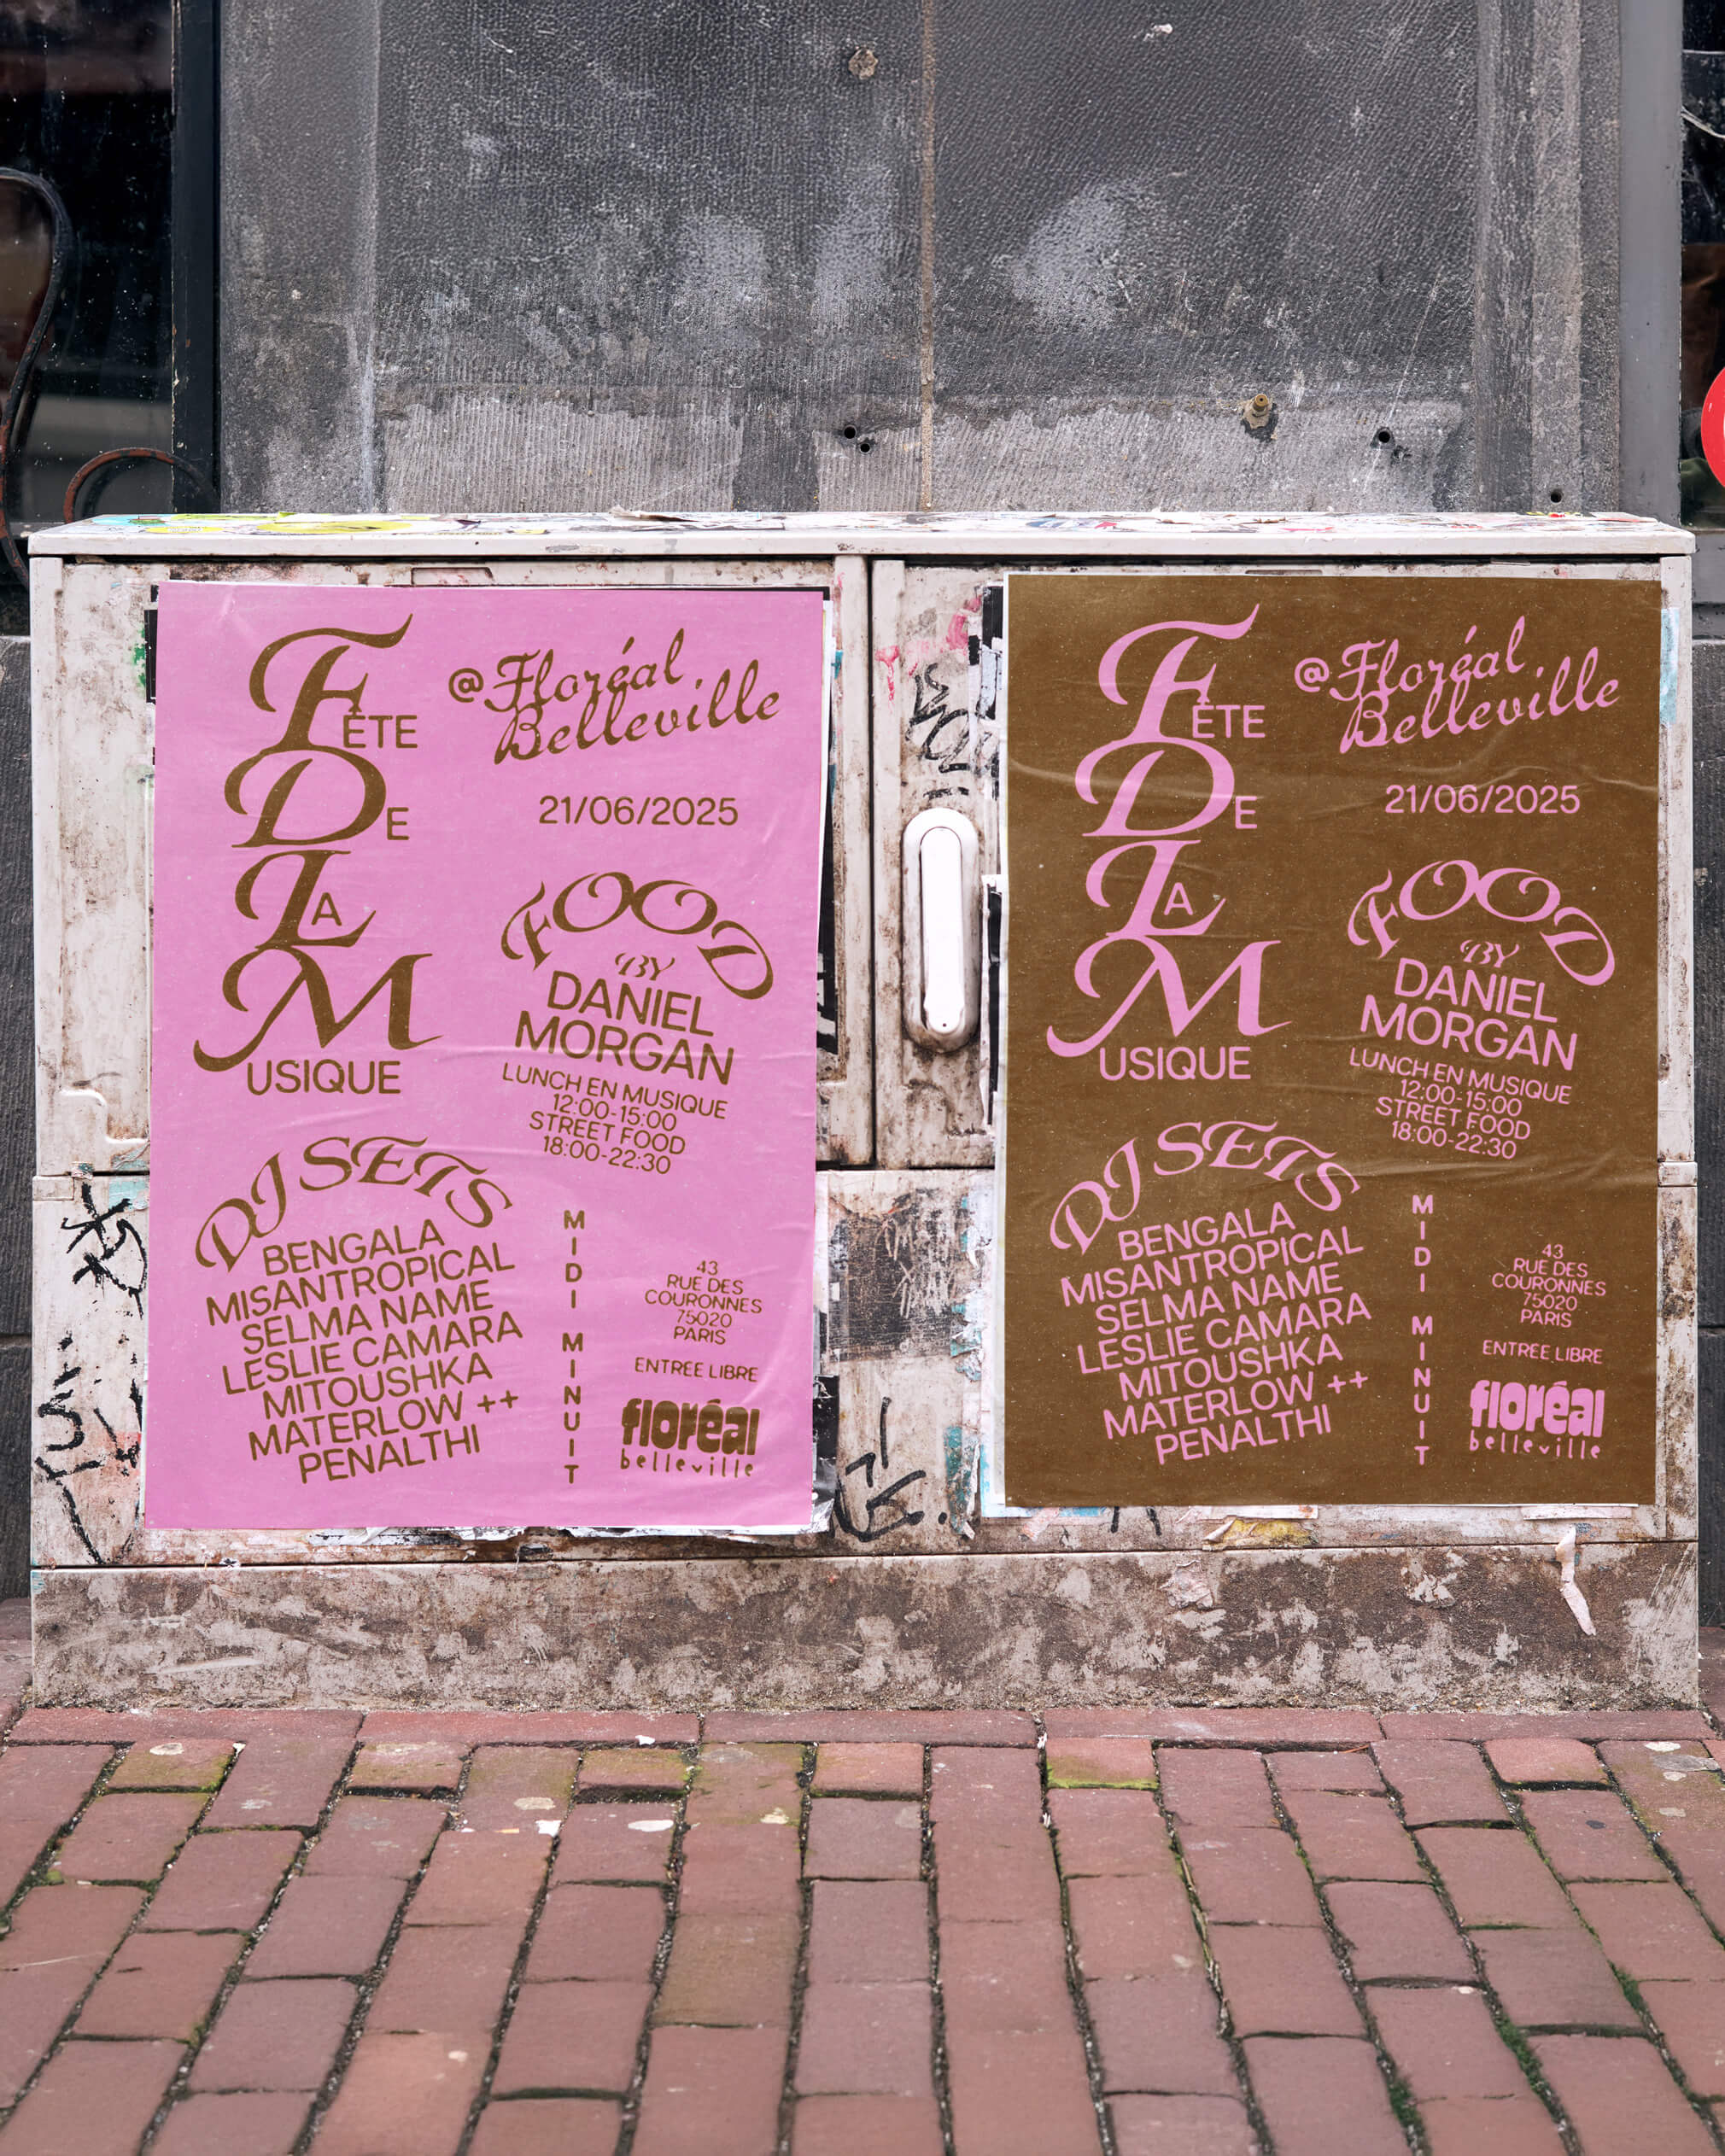 FÊTE
DE
LA
MUSIQUE
@Floréal
Belleville
21/06/2025
FOOD
BY
DANIEL
MORGAN
LUNCH EN MUSIQUE
12:00-15:00
STREET FOOD
18:00-22:30
DJ SETS
BENGALA
MISANTROPICAL
SELMA NAME
LESLIE CAMARA
MITOUSHKA
MATERLOW ++
PENALTHI
MIDI MINUIT
43
RUE DES
COURONNES
75020
PARIS
ENTREE LIBRE
floréal
belleville
FÊTE
DE
LA
MUSIQUE
@Floréal
Belleville
21/06/2025
FOOD
BY
DANIEL
MORGAN
LUNCH EN MUSIQUE
12:00-15:00
STREET FOOD
18:00-22:30
DJ SETS
BENGALA
MISANTROPICAL
SELMA NAME
LESLIE CAMARA
MITOUSHKA
MATERLOW ++
PENALTHI
MIDI MINUIT
43
RUE DES
COURONNES
75020
PARIS
ENTREE LIBRE
floréal
belleville